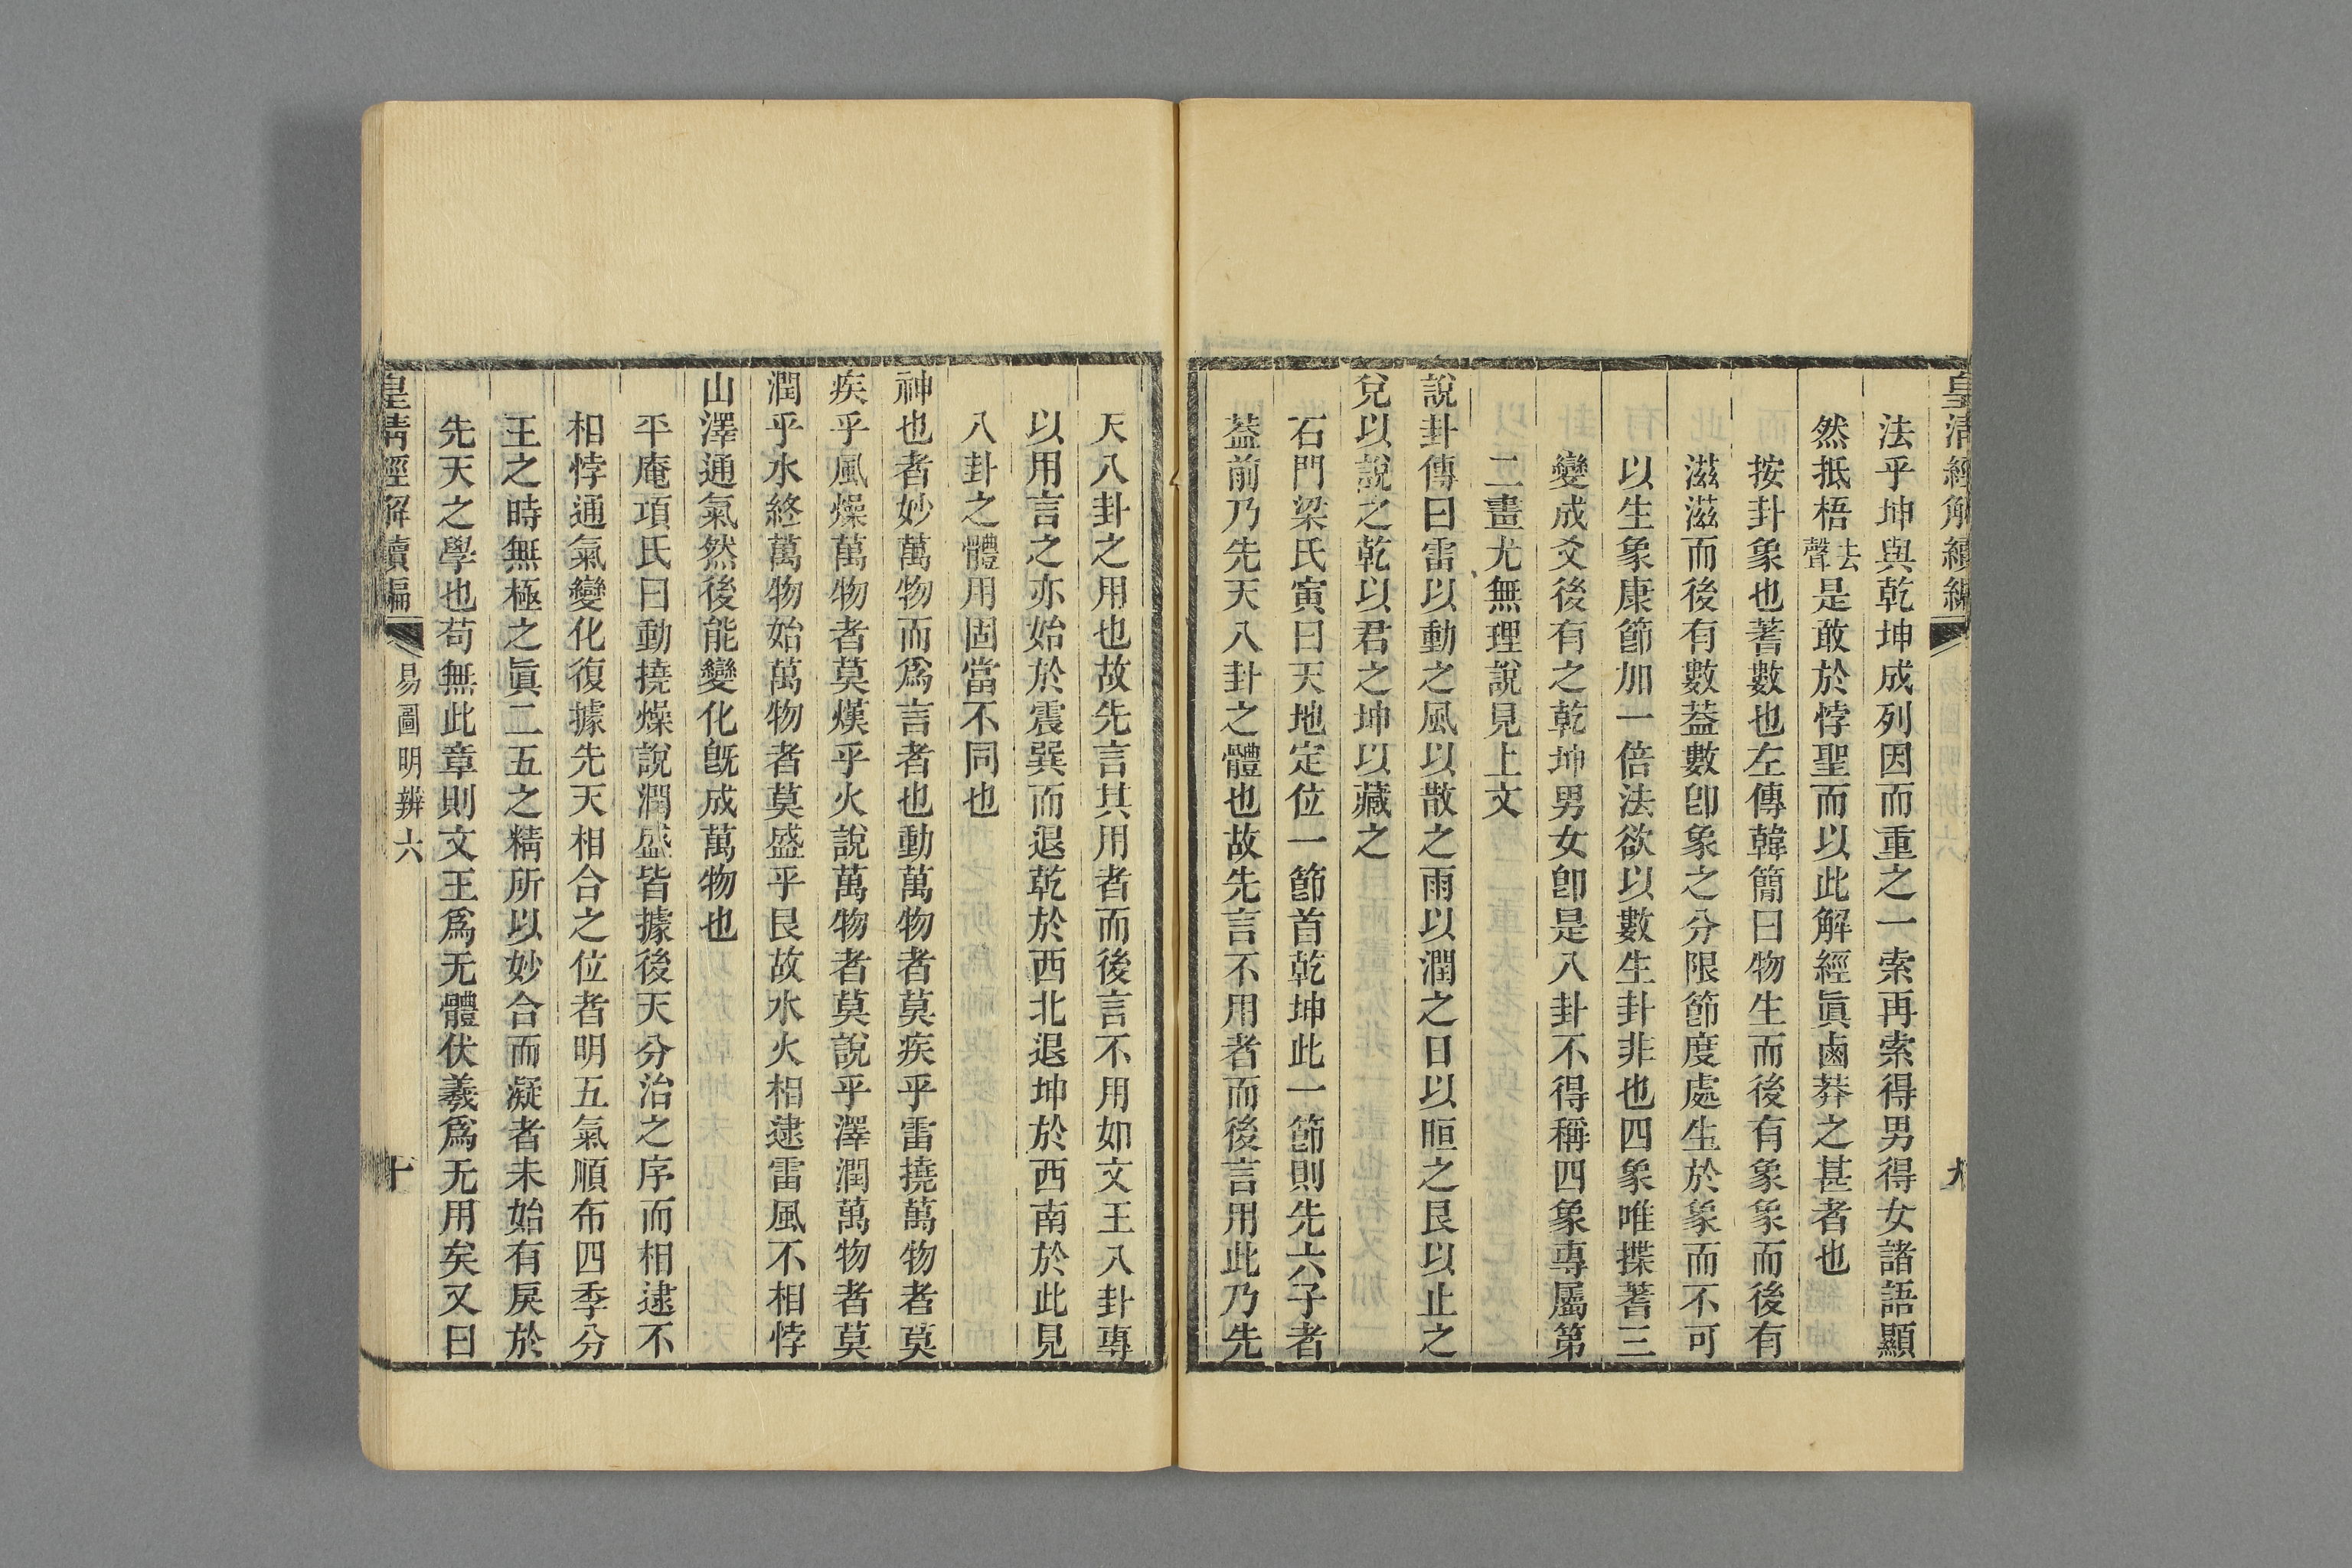 皇清經解續編
九
法乎坤與乾坤成列因而重之一索再索得男得女諸語顯
然抵梧去聲是敢於悖聖而以此解經眞鹵莽之甚者也
按卦象也蓍數也左傳韓簡曰物生而後有象象而後有
滋滋而後有數葢數卽象之分限節度處生於象而不可
以生象康節加一倍法欲以數生卦非也四象唯揲蓍三
變成爻後有之乾坤男女卽是八卦不得稱四象專屬第
二畫尤無理說見上文
說卦傳曰雷以動之風以散之雨以潤之日以晅之艮以止之
兌以說之乾以君之坤以藏之
石門梁氏寅曰天地定位一節首乾坤此一節則先六子者
葢前乃先天八卦之體也故先言不用者而後言用此乃先
天八卦之用也故先言其用者而後言不用如文王八卦專
以用言之亦始於震巽而退乾於西北退坤於西南於此見
八卦之體用固當不同也
神也者妙萬物而爲言者也動萬物者莫疾乎雷撓萬物者莫
疾乎風燥萬物者莫熯乎火說萬物者莫說乎澤潤萬物者莫
潤乎水終萬物始萬物者莫盛乎艮故水火相逮雷風不相悖
山澤通氣然後能變化旣成萬物也
平庵項氏曰動撓燥說潤盛皆據後天分治之序而相逮不
相悖通氣變化復據先天相合之位者明五氣順布四季分
王之時無極之眞二五之精所以妙合而凝者未始有戾於
先天之學也苟無此章則文王爲无體伏羲爲无用矣又曰
皇清經解續編
易圖明辨六
十